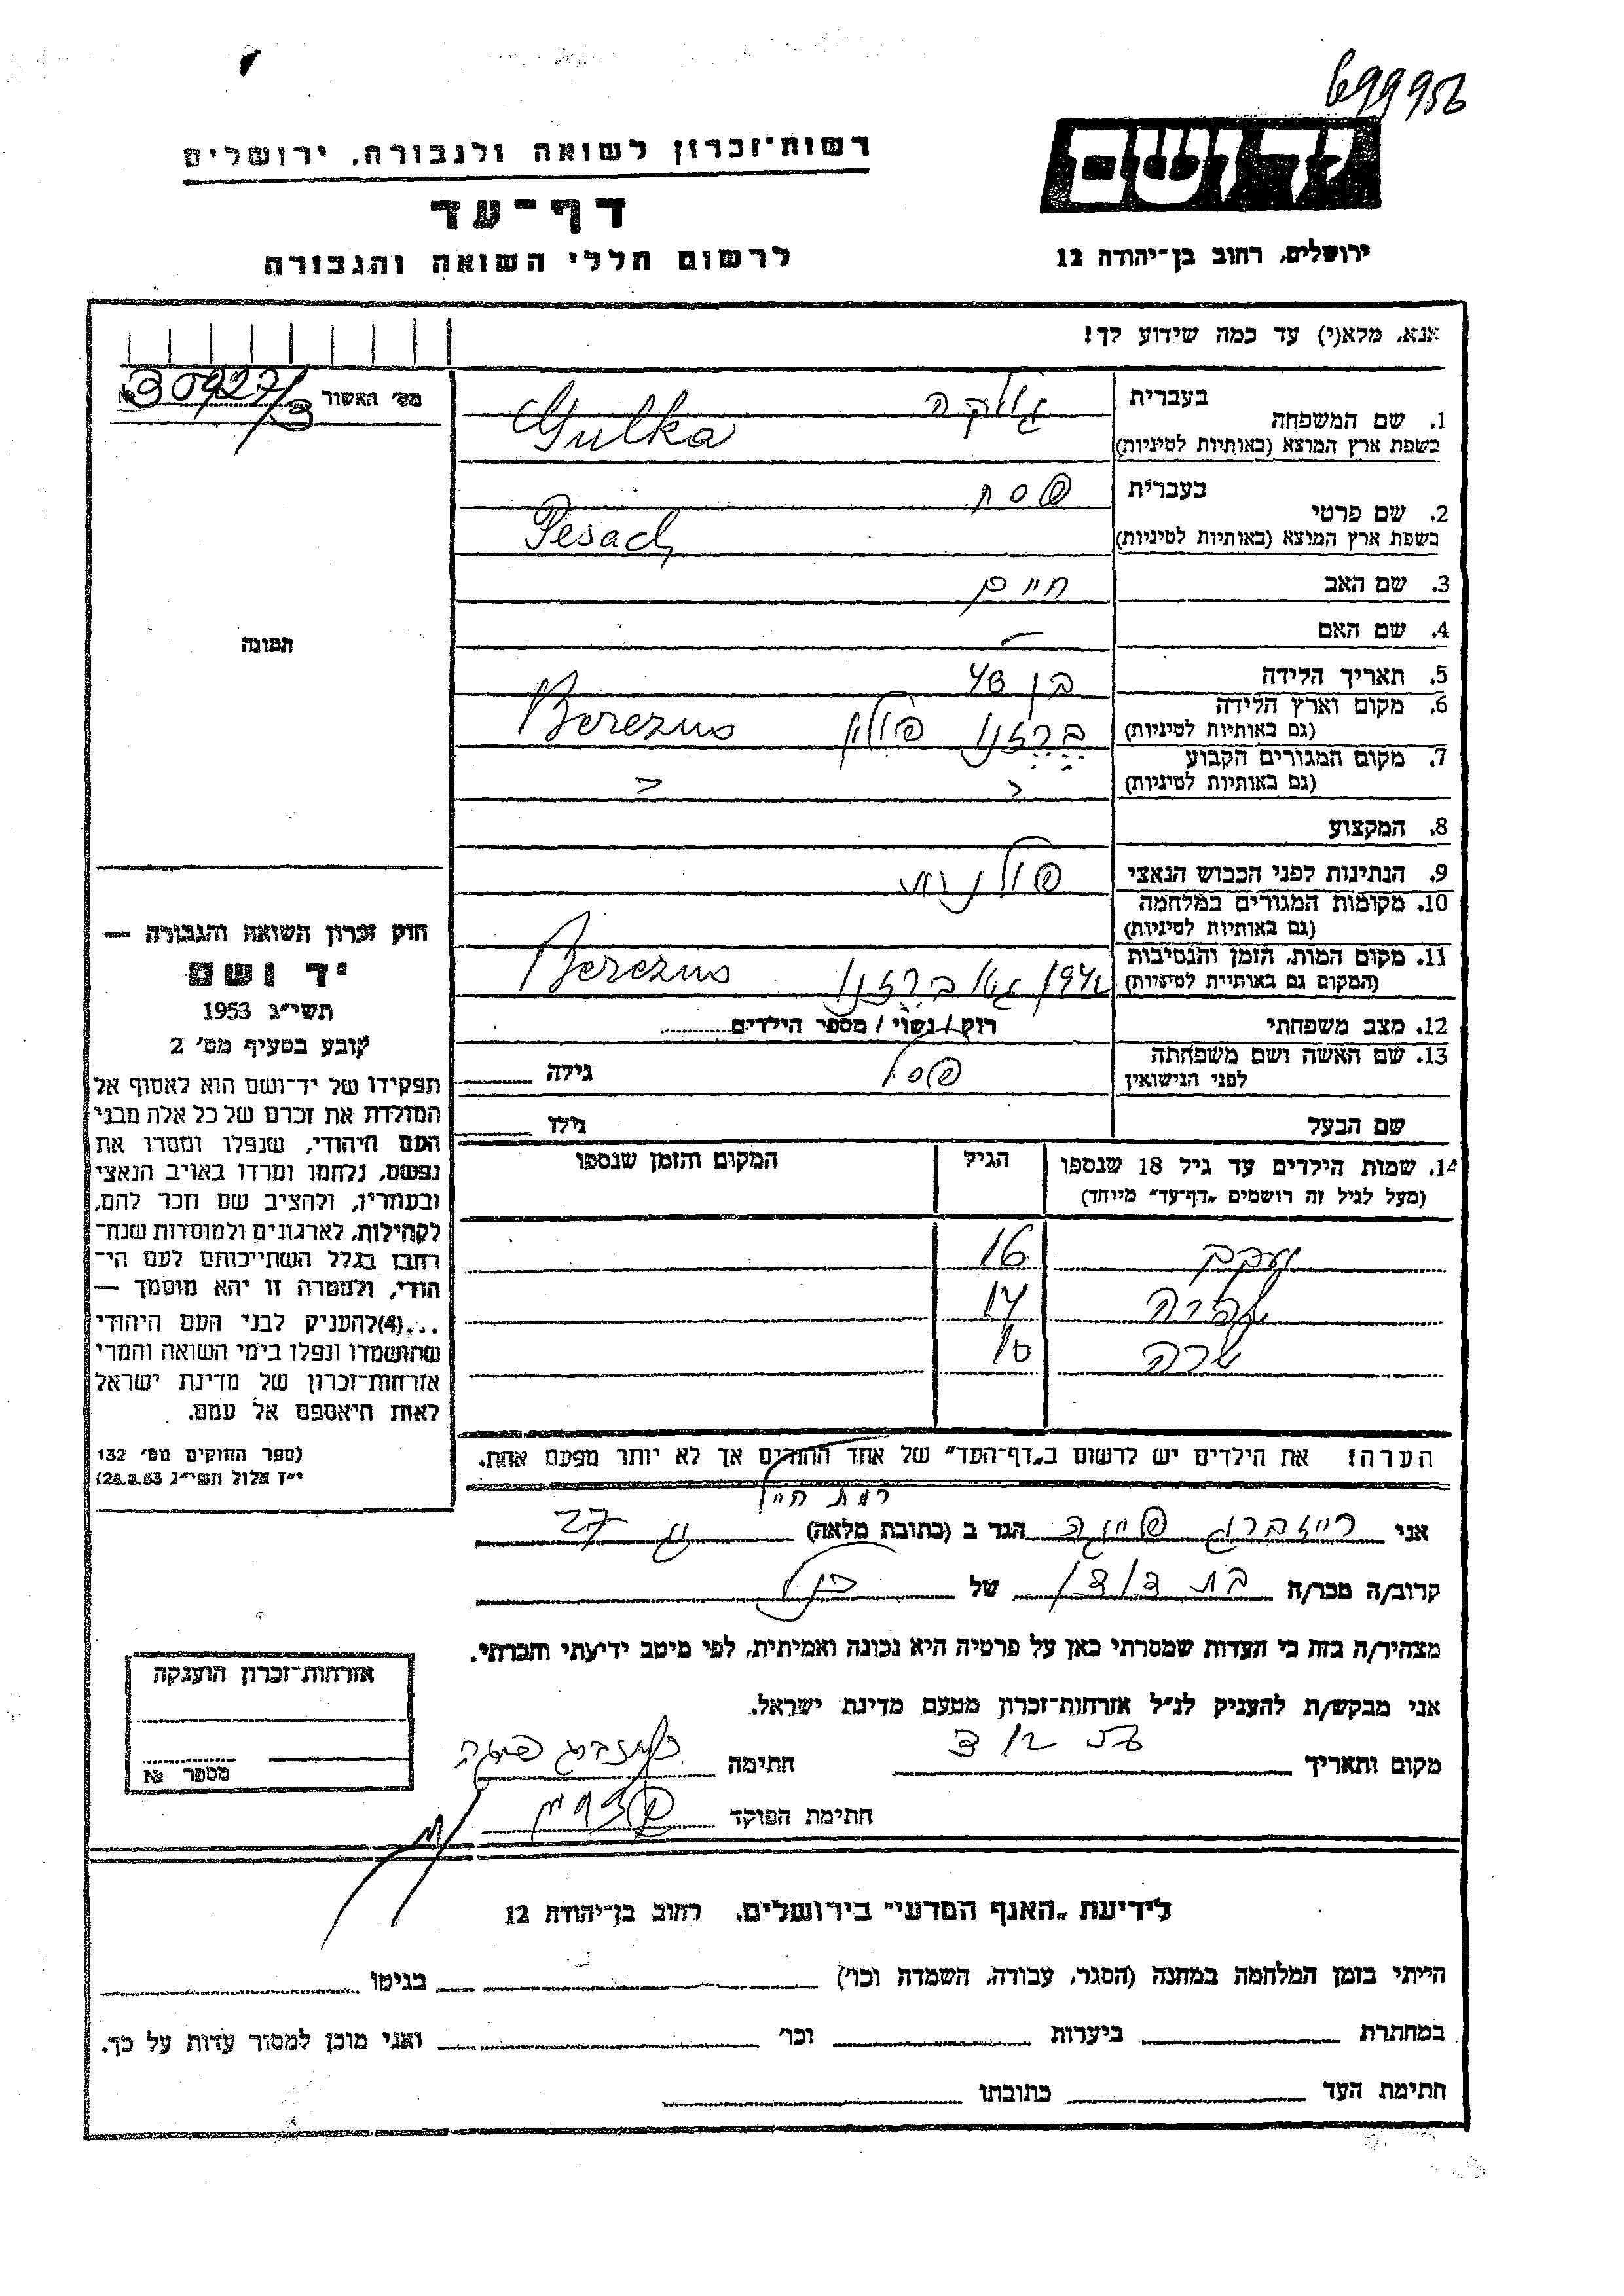 699956
יד ושם
רשות־זכרון לשואה ולגבורה, ירושלים
דף־עד
לרשום חללי השואה והגבורה
ירושלים, רחוב בן־יהודה 12
אנא, מלא(י) עד כמה שידוע לך!
מס׳ האשור № 30927/3
1. שם המשפחה בעברית גולקה
בשפת ארץ המוצא (באותיות לטיניות) Gulka
2. שם פרטי בעברית פסח
בשפת ארץ המוצא (באותיות לטיניות) Pesach
3. שם האב חיים
4. שם האם —
5. תאריך הלידה בן
6. מקום וארץ הלידה (גם באותיות לטיניות) ברזנו פולין Berezno
7. מקום המגורים הקבוע (גם באותיות לטיניות)
8. המקצוע
9. הנתינות לפני הכבוש הנאצי פולנית
10. מקומות המגורים במלחמה (גם באותיות לטיניות)
11. מקום המות, הזמן והנסיבות (המקום גם באותיות לטיניות) גטו ברזנו Berezno
12. מצב משפחתי רווק / נשוי / מספר הילדים
13. שם האשה ושם משפחתה לפני הנישואין פסל גילה
שם הבעל גילו
14. שמות הילדים עד גיל 18 שנספו הגיל המקום והזמן שנספו
(מעל לגיל זה רושמים „דף־עד״ מיוחד)
יעקב 16
14
שרה 10
הערה! את הילדים יש לרשום ב„דף־העד״ של אחד ההורים אך לא יותר מפעם אחת.
תמונה
חוק זכרון השואה והגבורה —
יד ושם
תשי״ג 1953
קובע בסעיף מס׳ 2
תפקידו של יד־ושם הוא לאסוף אל
המולדת את זכרם של כל אלה מבני
העם היהודי, שנפלו ומסרו את
נפשם, נלחמו ומרדו באויב הנאצי
ובעוזריו, ולהציב שם וזכר להם,
לקהילות, לארגונים ולמוסדות שנח־
רבו בגלל השתייכותם לעם הי־
הודי, ולמטרה זו יהא מוסמך —
...(4)להעניק לבני העם היהודי
שהושמדו ונפלו בימי השואה והמרי
אזרחות־זכרון של מדינת ישראל
לאות היאספם אל עמם.
(ספר החוקים מס׳ 132
י״ז אלול תשי״ג 28.8.53)
רמת
אני רייזברג הגר ב (כתובת מלאה) 27
קרוב/ה מכר/ה בת דודו של
מצהיר/ה בזה כי העדות שמסרתי כאן על פרטיה היא נכונה ואמיתית, לפי מיטב ידיעתי והכרתי.
אני מבקש/ת להעניק לנ״ל אזרחות־זכרון מטעם מדינת ישראל.
מקום ותאריך חתימה
חתימת הפוקד
אזרחות־זכרון הוענקה
מספר №
לידיעת „האגף המדעי״ בירושלים, רחוב בן־יהודה 12
הייתי בזמן המלחמה במחנה (הסגר, עבודה, השמדה וכו׳) בגיטו
במחתרת ביערות וכו׳ ואני מוכן למסור עדות על כך.
חתימת העד כתובתו